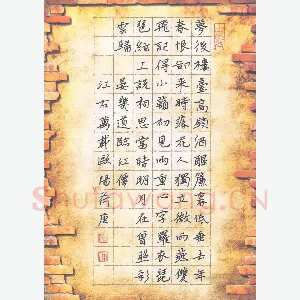 夢後樓臺高鎖酒醒簾幕低垂去年
春恨卻來時落花人獨立微雨燕雙
飛記得小蘋初見兩重心字羅衣琵
琶絃上說相思當時明月在曾照彩
雲歸 晏幾道臨江僊
江右萬載歐陽荷庚